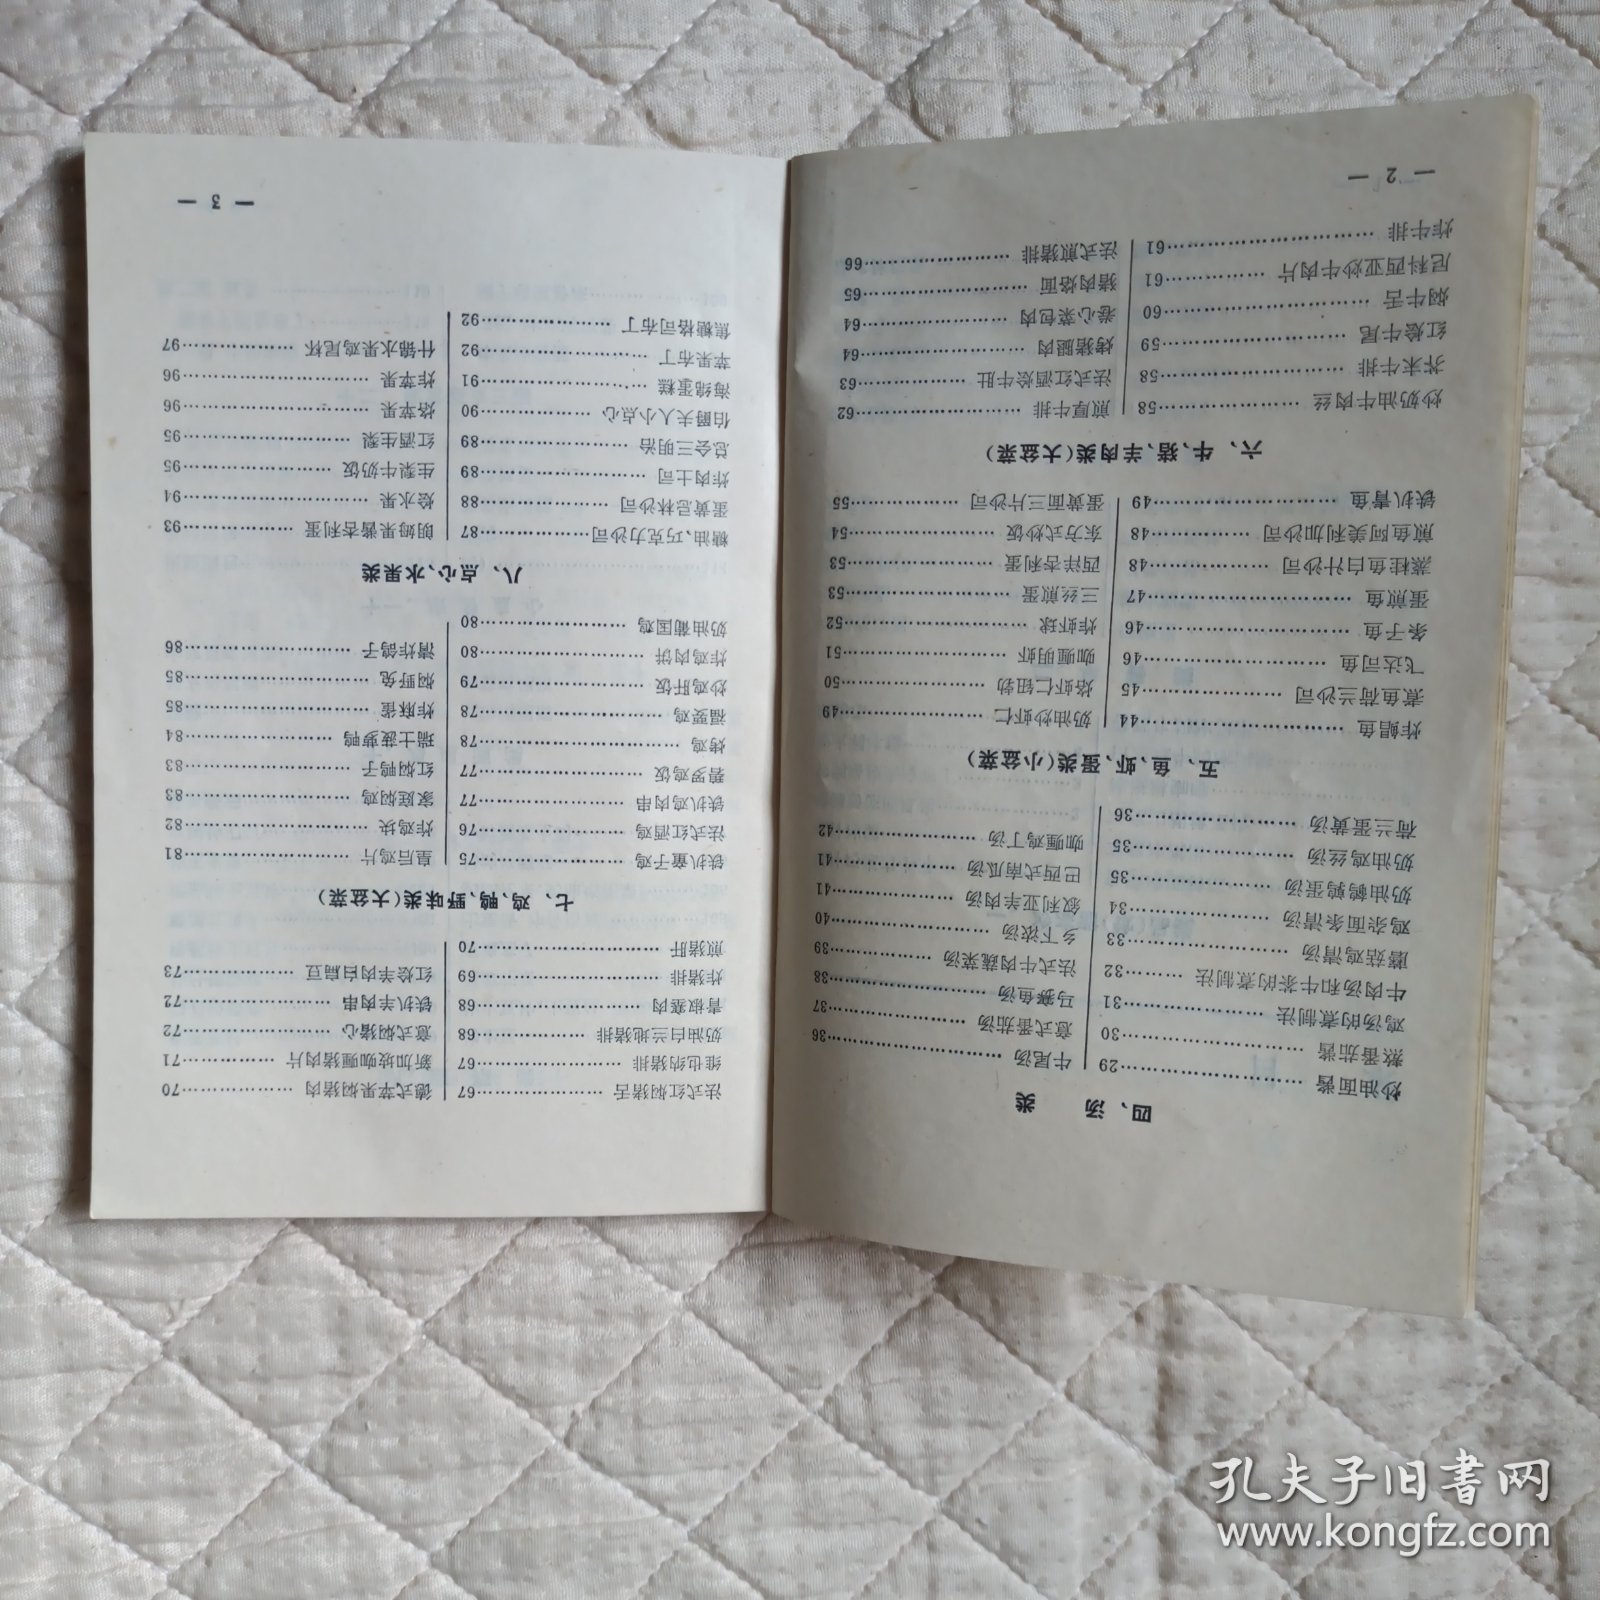 四、汤 类
炒油面酱……29
熬番茄酱……30
鸡汤的煮制法……31
牛肉汤和牛茶的煮制法……32
蘑菇鸡清汤……33
鸡杂面条清汤……34
奶油鹌鹑蛋汤……35
奶油鸡丝汤……35
荷兰蛋黄汤……36
牛尾汤……36
意式番茄汤……37
马赛鱼汤……38
法式牛肉蔬菜汤……39
乡下浓汤……40
叙利亚羊肉汤……41
巴西式南瓜汤……41
咖喱鸡丁汤……42
五、鱼、虾、蛋类(小盆菜)
炸鲳鱼……44
煮鱼荷兰沙司……45
飞达司鱼……46
条子鱼……46
蛋煎鱼……47
蒸桂鱼白汁沙司……48
煎鱼阿美利加沙司……48
铁扒青鱼……49
奶油炒虾仁……49
烙虾仁钮勃……50
咖喱明虾……51
炸虾球……52
三丝煎蛋……53
西洋杏利蛋……53
东方式炒饭……54
蛋黄面三片沙司……55
六、牛、猪、羊肉类(大盆菜)
炒奶油牛肉丝……58
芥末牛排……58
红烩牛尾……59
焖牛舌……60
尼科西亚炒牛肉片……61
炸牛排……61
煎厚牛排……62
法式红酒烩牛肚……63
烤猪腿肉……64
卷心菜包肉……64
猪肉烙面……65
法式煎猪排……66
— 2 —
法式红焖猪舌……67
维也纳猪排……67
奶油白兰地猪排……68
青椒塞肉……68
炸猪排……69
煎猪肝……70
德式苹果焖猪肉……70
新加坡咖喱猪肉片……71
意式焖猪心……72
铁扒羊肉串……72
红烩羊肉白扁豆……73
七、鸡、鸭、野味类(大盆菜)
铁扒童子鸡……75
法式红酒鸡……76
铁扒鸡肉串……77
碧罗鸡饭……77
烤鸡……78
福买鸡……78
炒鸡肝饭……79
炸鸡肉饼……80
奶油葡国鸡……80
皇后鸡片……81
炸鸡块……82
家庭焖鸡……83
红焖鸭子……83
瑞士菠萝鸭……84
炸麻雀……85
焖野兔……85
清炸鸽子……86
八、点心、水果类
糖油、巧克力沙司……87
蛋黄忌林沙司……88
炸肉土司……89
总会三明治……89
伯爵夫人小点心……90
海绵蛋糕……91
苹果布丁……92
焦糖格司布丁……92
朗姆果酱杏利蛋……93
烩水果……94
生梨牛奶饭……95
红酒生梨……95
烙苹果……96
炸苹果……96
什锦水果鸡尾杯……97
— 3 —
孔夫子旧书网
www.kongfz.com